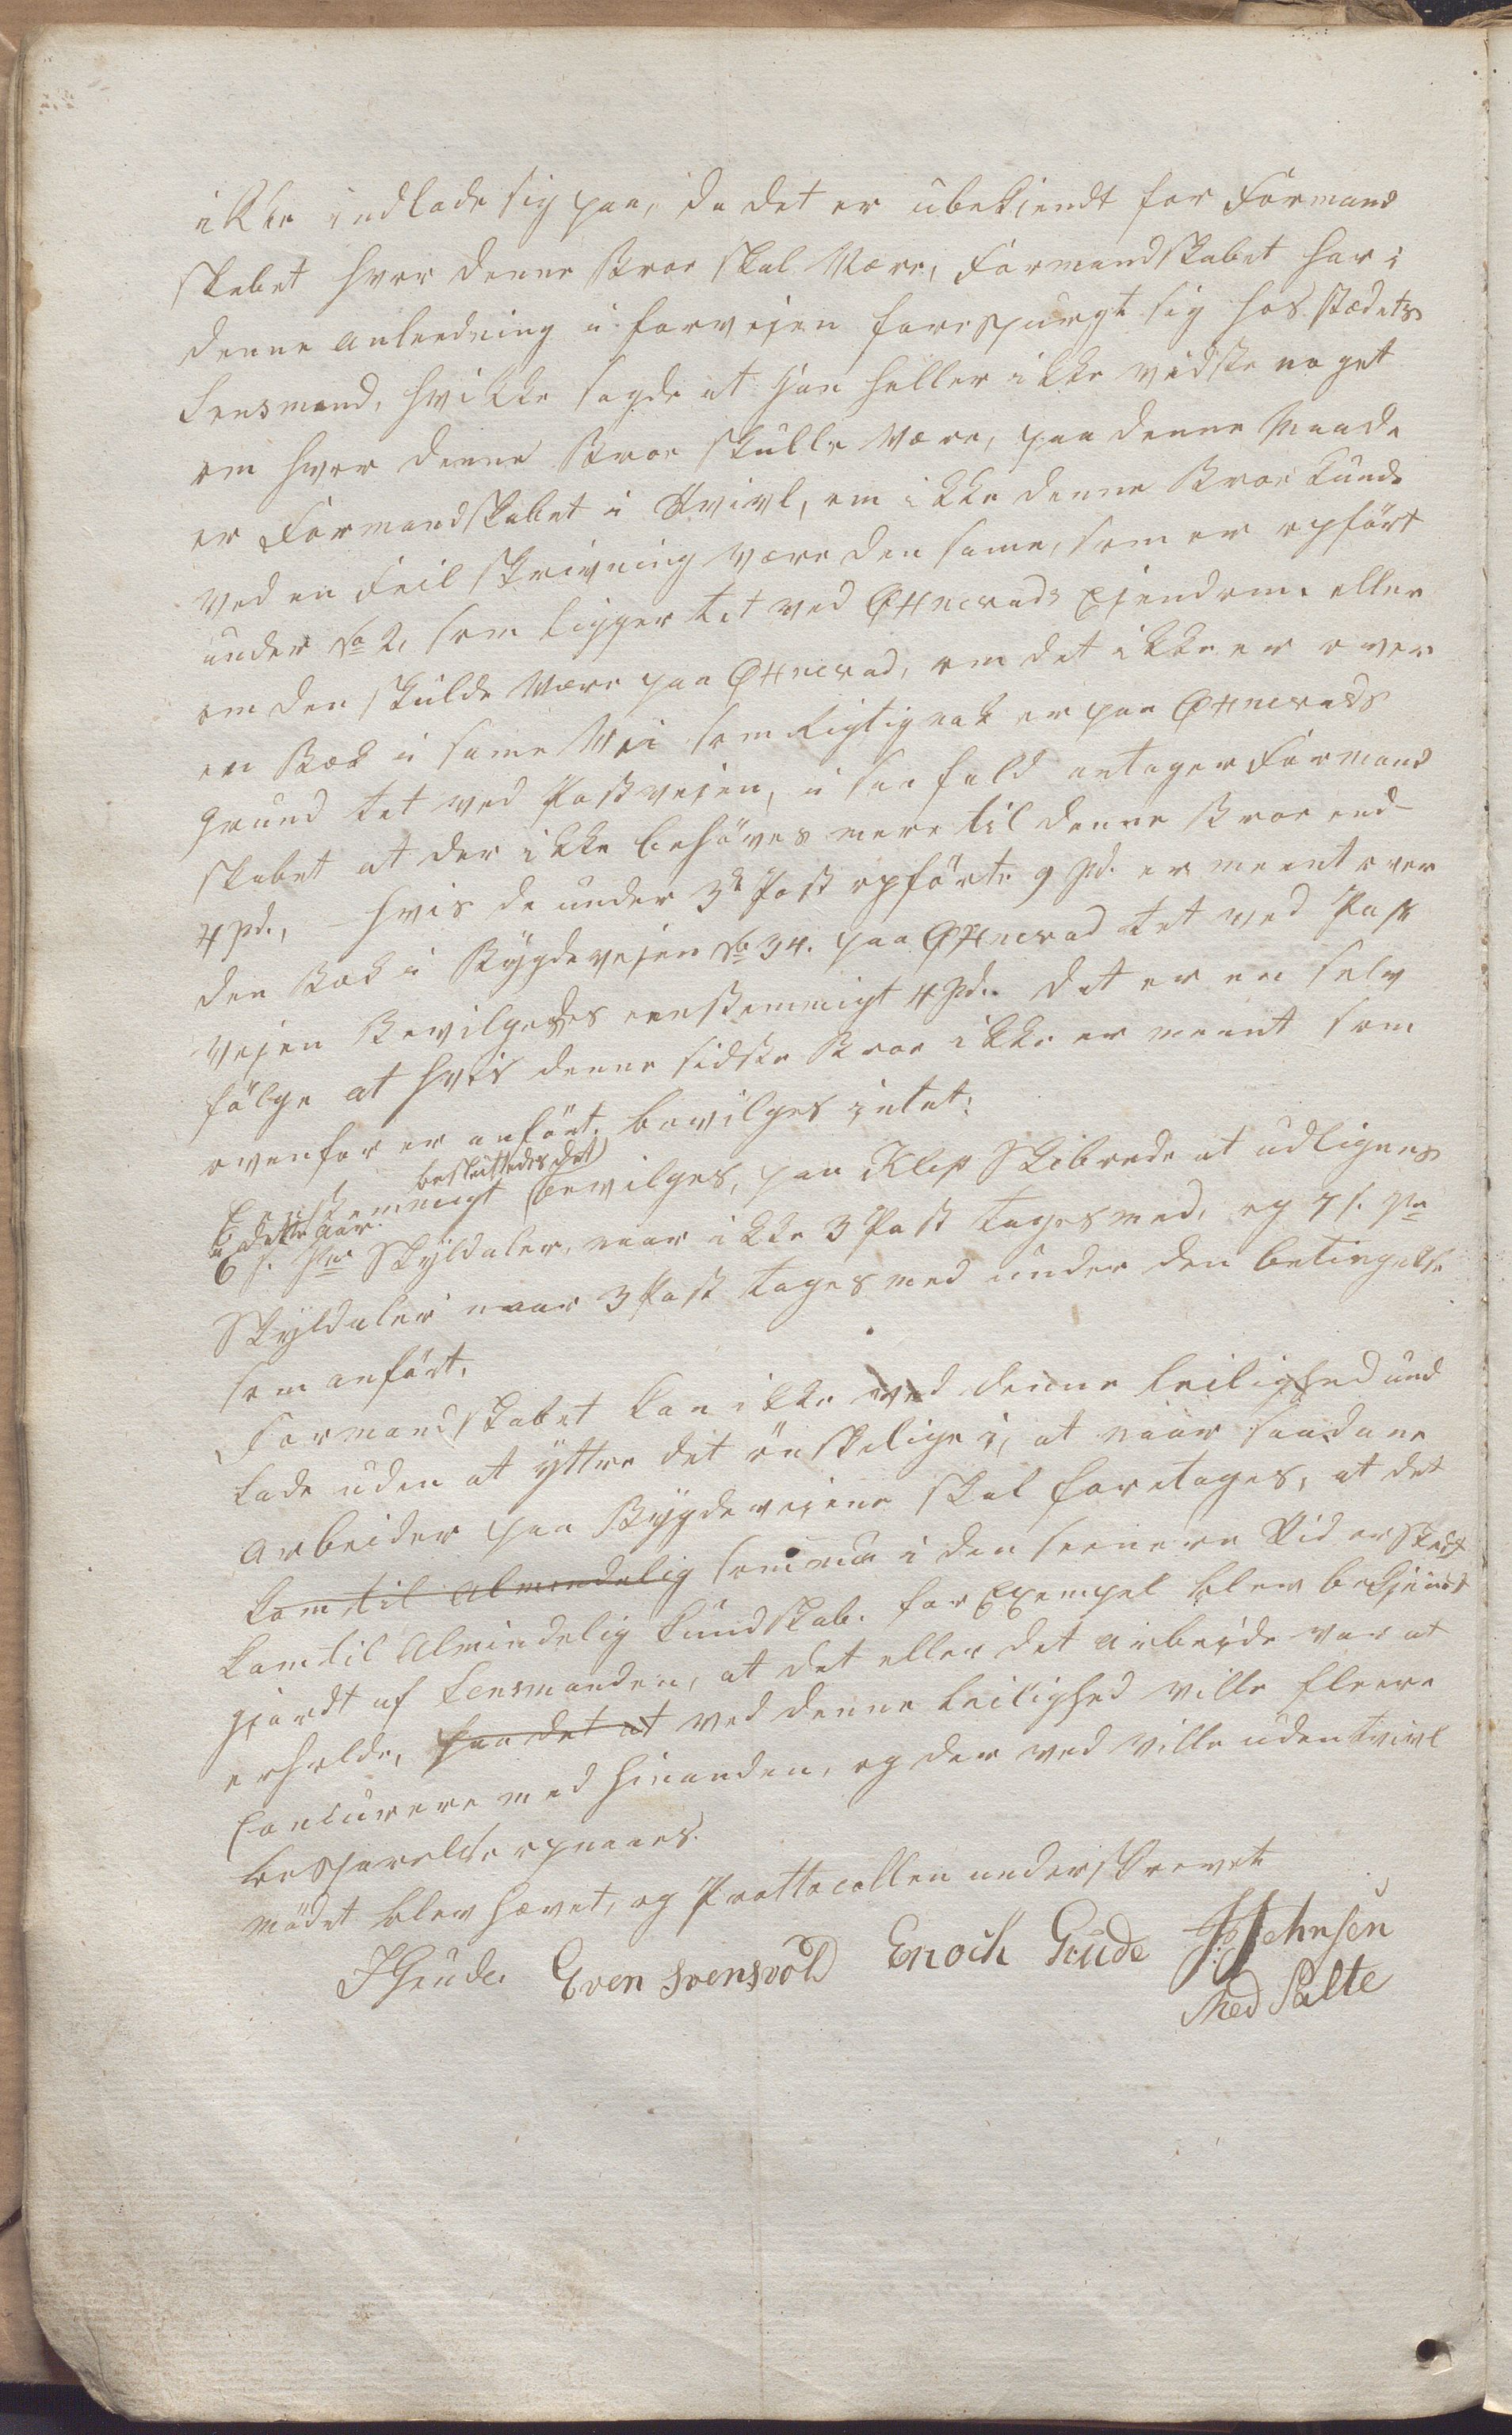 ikke indlade sig paa, da det er ubekjendt for Formand
skabet hvor denne Broe skal Være, Formandskabet har i
denne anledning i forvejen forespurgt sig hos stedets
Lensmand, hvilke sagde at han heller ikke vidste noget
om hvor denne Broe skulle Være, paa denne Maade
er Formandskabet i tvivl, om ikke denne Broe kunde
ved en Feil skrivning være den same, som er opført
under No 2, som ligger tet ved Øttnerads Ejendom. eller
om den skulde Være paa Øttnerad, om det ikke er over
en Bæk i same Vei som Rigtig nok er paa Øttnerads
grund tet ved Postvejen, i saa fald antager Formand
skabet at der ikke behøves mere til denne Broe end
4 Spd., - hvis de under 3de Post opførte 9 Spd. er meent over
den Bæk i Bygdevejen No 34. paa Øttnerad tet ved Post
vejen Bevilgedes eenstemmigt 4 Spd. det er en selv
følge at hvis denne sidste Broe ikke er meent som
ovenfor er anført. bevilges intet:
besluttedes det
Eenstemmigt bevilges, paa Klep Skibrede at udlignes
i dette Aar.
6 s. Pr Skyldaler, naar ikke 3 Post tages med, og 7 s. Pr
Skyldaler naar 3 Post tages med under den betingelse
som anført.
Formandskabet kan ikke ved denne leilighed und
lade uden at yttre det ønskelige i, at naar saadane
Arbeider paa Bygdeveiene skal foretages, at det
kom til Almindelig som nu i den seenere Tid er skeet
kom til Almindelig kundskab. for Exempel blev bekjendt
gjordt af Lensmanden, at det eller det arbeide var at
erholde, paa det at ved denne leilighed ville fleere
Concurere med hinanden, og der ved ville uden tvivl
besparelse opnaaes.
mødet blev hævet, og Prottocollen underskrevet
I Gude. Even Svensvold Enoch Gude J Johnsen
Med Salte